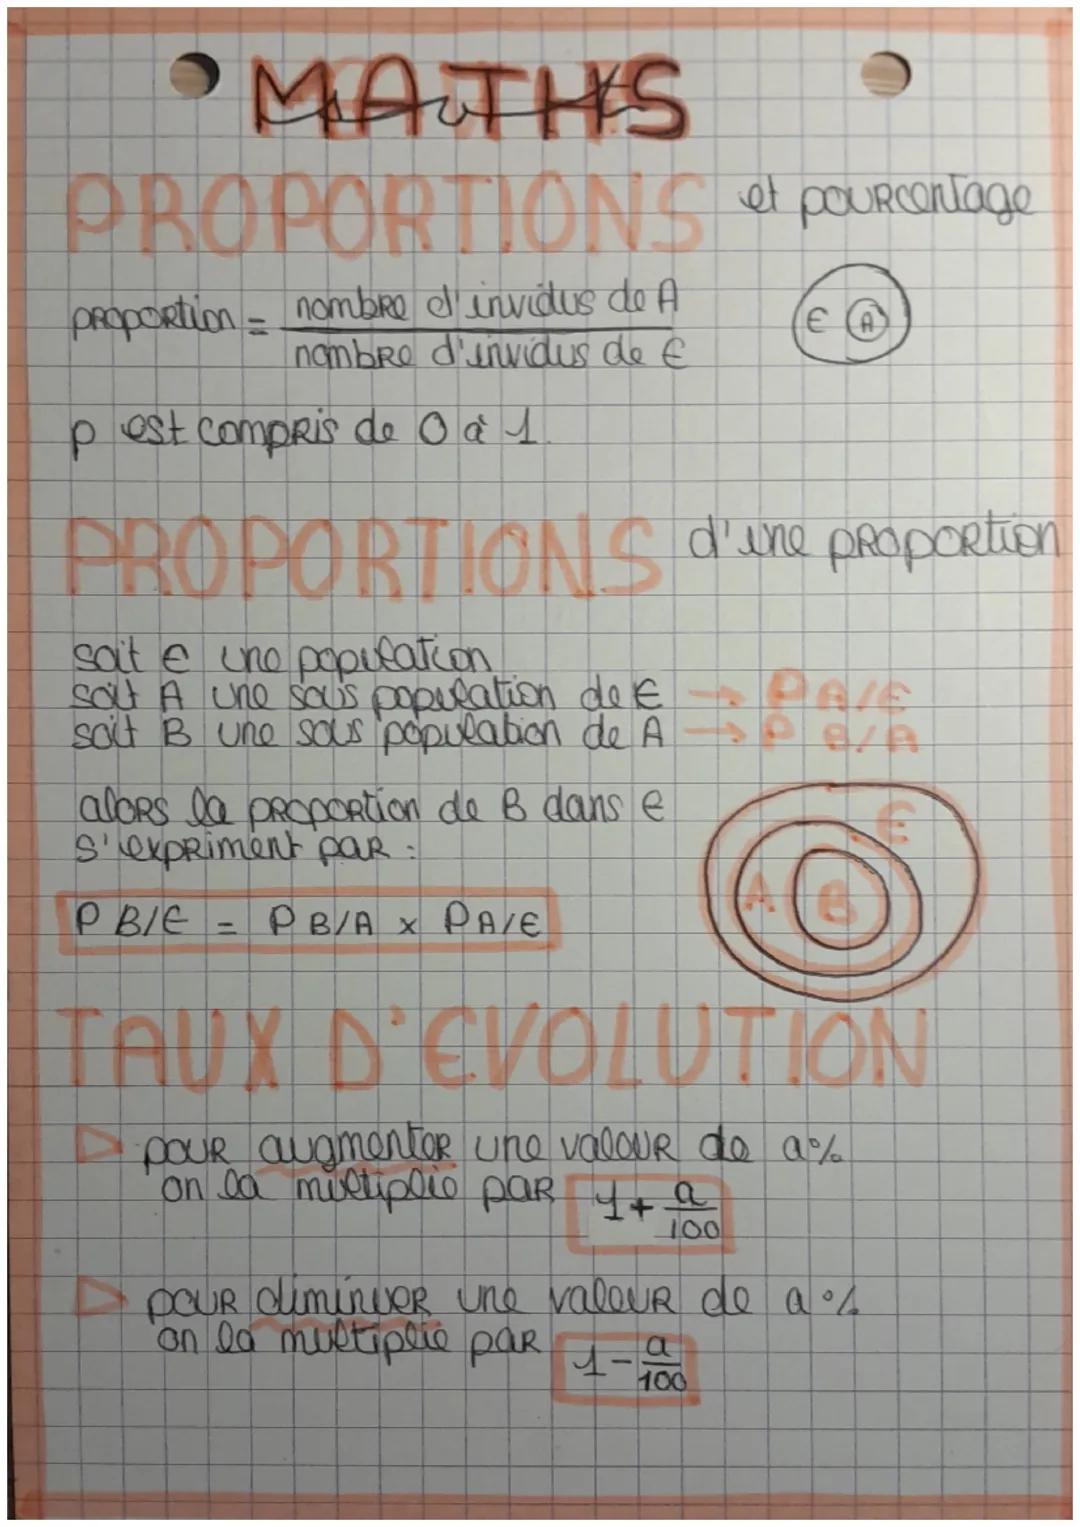 MATHS
PROPORTIONS et pourcentage
proportion = nombre d'invidus de A
nombre d'invidus de E
E A
p est compris de 0 à 1.
PROPORTIONS d'une proportion
soit E une population
soit A une sous population de E → P A/E
soit B une sous population de A → P B/A
alors la proportion de B dans E
s'expriment par :
E
A B
P B/E = P B/A × P A/E
TAUX D'EVOLUTION
▷ pour augmenter une valeur de a%
on la multiplie par 1 + a/100
▷ pour diminuer une valeur de a%
on la multiplie par 1 - a/100